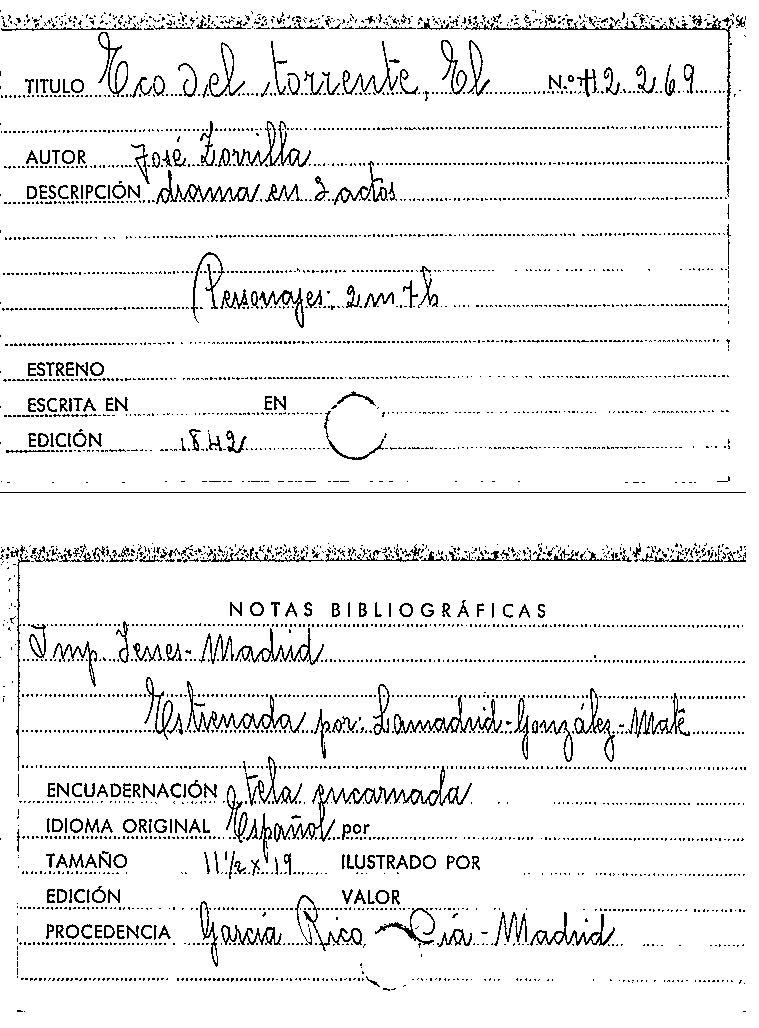 TITULO Eco del torrente, El N.º 42.269
AUTOR José Zorrilla
DESCRIPCIÓN drama en 3 actos
Personajes: 2 m 7 h
ESTRENO
ESCRITA EN EN
EDICIÓN 1842
NOTAS BIBLIOGRÁFICAS
Imp. Yenes - Madrid
Estrenada por: Lamadrid - González - Maté
ENCUADERNACIÓN tela encarnada
IDIOMA ORIGINAL Español por
TAMAÑO 11 1/2 x 19 ILUSTRADO POR
EDICIÓN VALOR
PROCEDENCIA García Rico Cía - Madrid